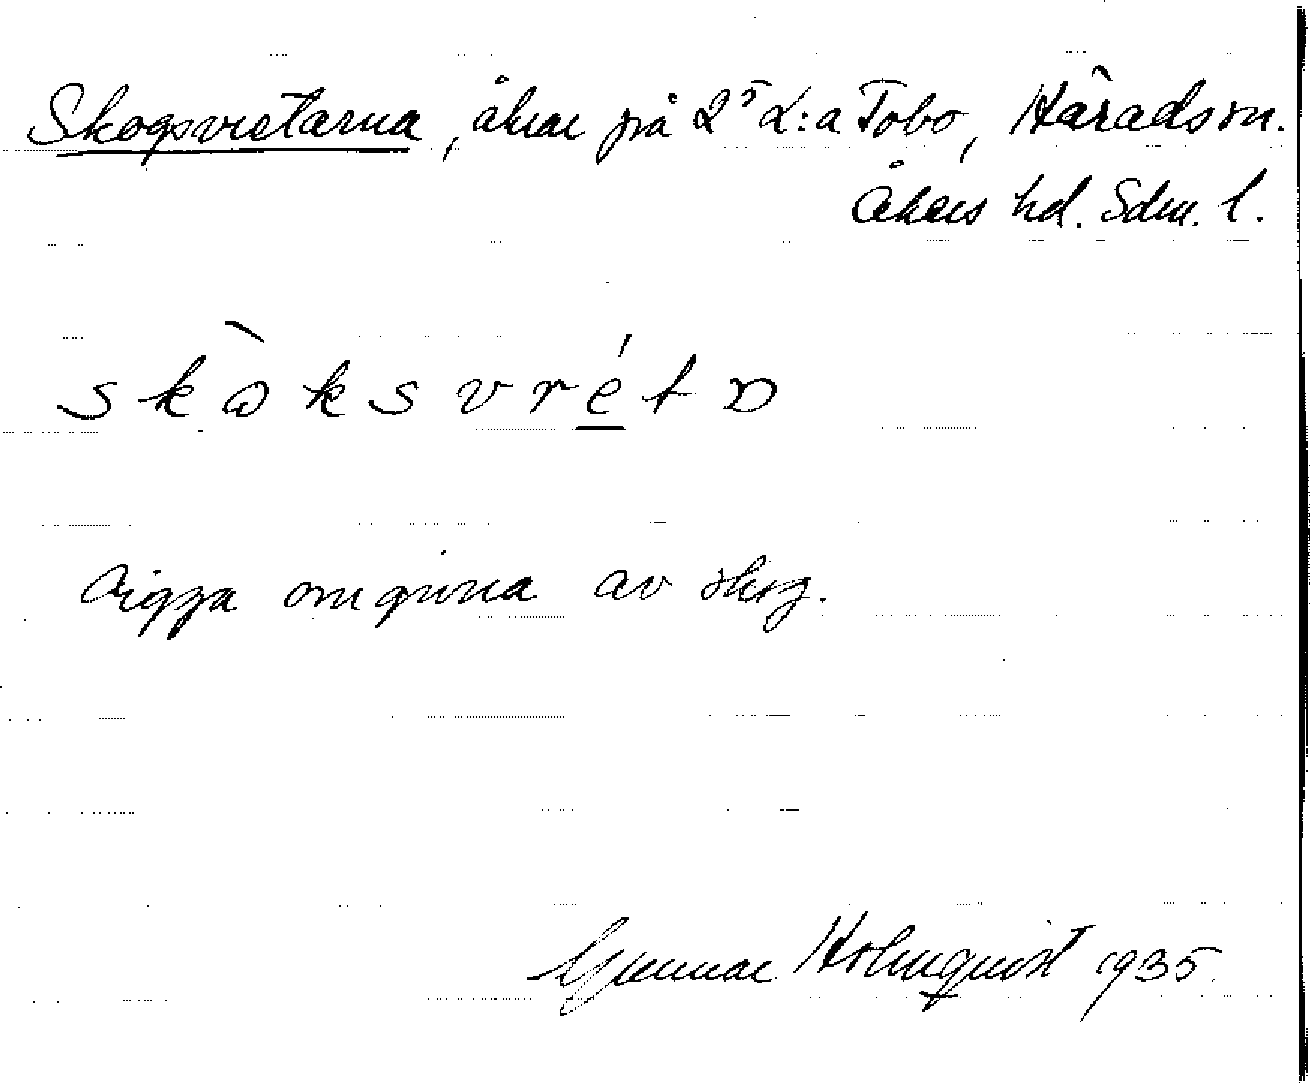 Skogsvretarna, åkrar på 2⁵ L:a Tobo, Härads sn.
Åkers hd. Sdm. l.
skòksvréta
Ligga omgivna av skog.
Gunnar Holmquist 1935.